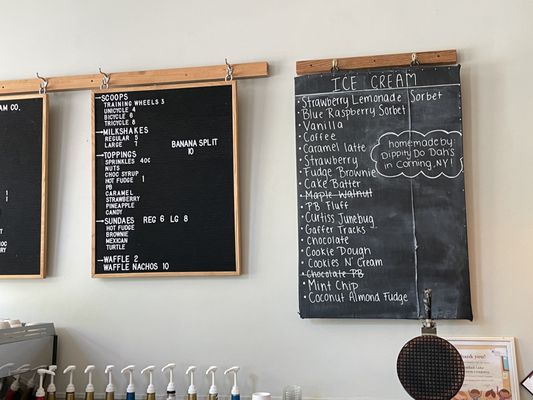 AM CO.
1
1
3
→SCOOPS
TRAINING WHEELS 3
UNICYCLE 4
BICYCLE 6
TRICYCLE 8
→MILKSHAKES
REGULAR 5
LARGE 7
→TOPPINGS
SPRINKLES 40¢
NUTS
CHOC SYRUP
HOT FUDGE 1
PB
CARAMEL
STRAWBERRY
PINEAPPLE
CANDY
→SUNDAES REG 6 LG 8
HOT FUDGE
BROWNIE
MEXICAN
TURTLE
→WAFFLE 2
WAFFLE NACHOS 10
BANANA SPLIT
10
ICE CREAM
• Strawberry Lemonade Sorbet
• Blue Raspberry Sorbet
• Vanilla
• Coffee
• Caramel latte
• Strawberry
• Fudge Brownie
• Cake Batter
• Maple Walnut
• PB Fluff
• Curtiss Junebug
• Gaffer Tracks
• Chocolate
• Cookie Dough
• Cookies N' Cream
• Chocolate PB
• Mint Chip
• Coconut Almond Fudge
homemade by:
Dippity Do Dah's
in Corning, NY!
thank you!